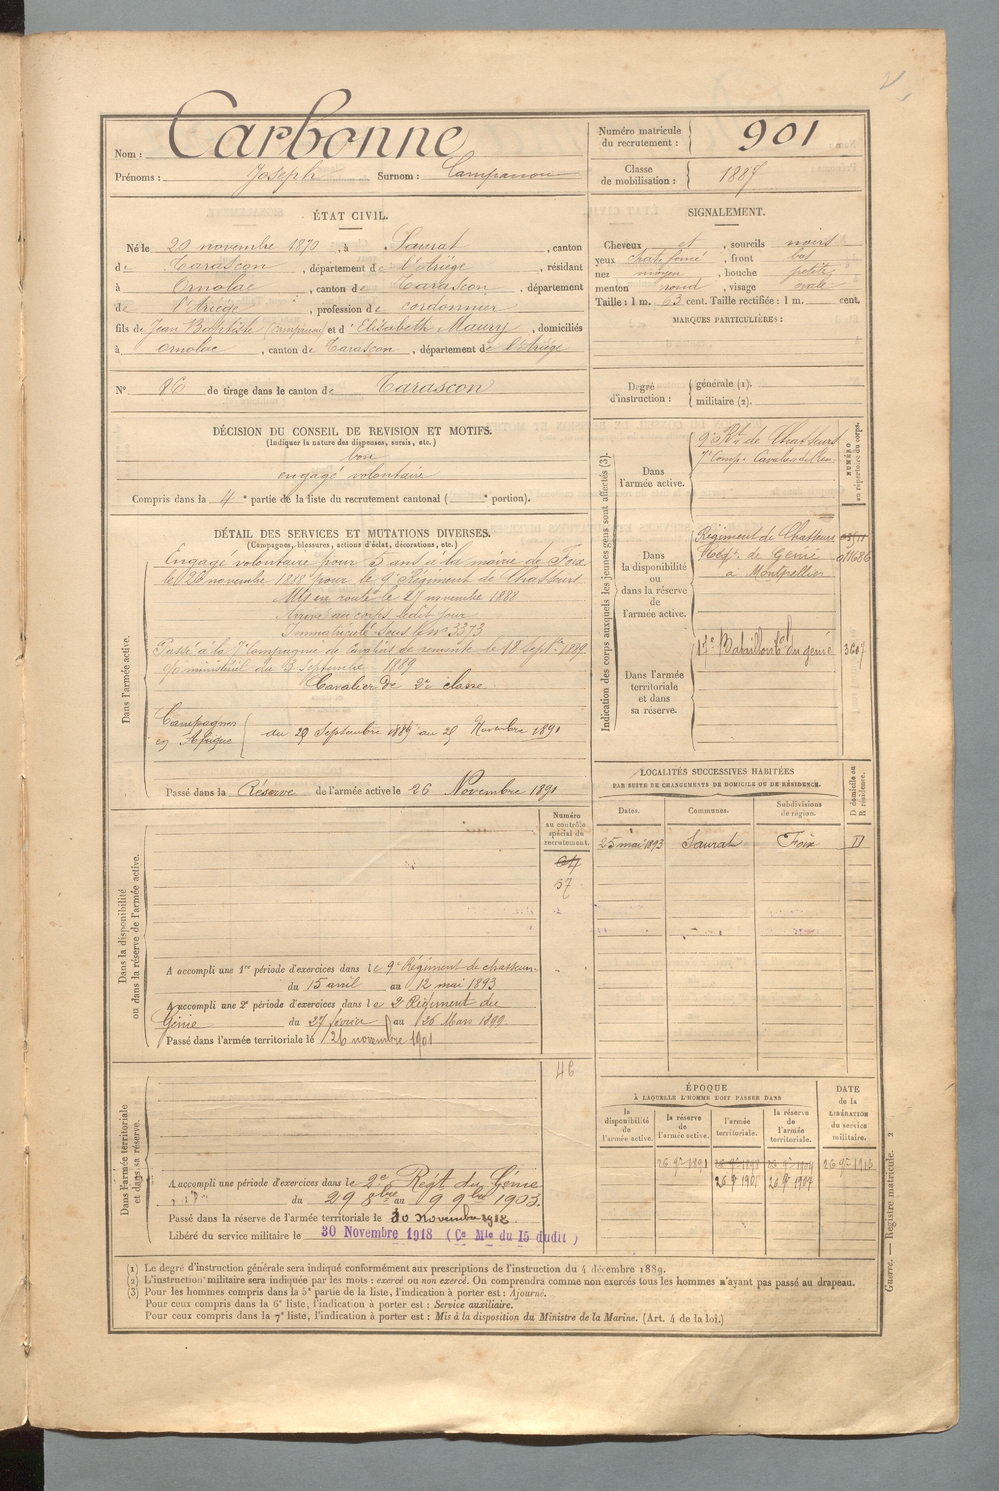 Nom : Carbonne
Prénoms : Joseph Surnom : Campanou
Numéro matricule du recrutement : 901
Classe de mobilisation : 1887
ÉTAT CIVIL.
Né le 20 novembre 1870, à Saurat, canton
de Tarascon, département de l'Ariége, résidant
à Ornolac, canton de Tarascon, département
de l'Ariége, profession de cordonnier
fils de Jean Baptiste (Campanou) et d'Elisabeth Maury, domiciliés
à Ornolac, canton de Tarascon, département de l'Ariége
N° 86 de tirage dans le canton de Tarascon
SIGNALEMENT.
Cheveux et, sourcils noirs
yeux chat. foncé, front bas
nez moyen, bouche petite
menton rond, visage ovale
Taille : 1 m. 63 cent. Taille rectifiée : 1 m. cent.
MARQUES PARTICULIÈRES :
Degré d'instruction : générale (1).
militaire (2).
DÉCISION DU CONSEIL DE REVISION ET MOTIFS.
(Indiquer la nature des dispenses, sursis, etc.)
bon
engagé volontaire
Compris dans la 4e partie de la liste du recrutement cantonal ( e portion).
DÉTAIL DES SERVICES ET MUTATIONS DIVERSES.
(Campagnes, blessures, actions d'éclat, décorations, etc.)
Dans l'armée active.
Engagé volontaire pour 5 ans à la mairie de Foix
le 26 novembre 1888 pour le 9e Régiment de Chasseurs
Mis en route le 27 novembre 1888
Arrivé au corps ledit jour
Immatriculé sous le no 3373
Passé à la 7e Compagnie de Cavaliers de remonte le 18 septbre 1889
on ministériel du 3 septembre 1889
Cavalier de 2e classe
Campagnes en Afrique du 29 Septembre 1889 au 25 Novembre 1891
Passé dans la Réserve de l'armée active le 26 Novembre 1891
Indication des corps auxquels les jeunes gens sont affectés (3).
NUMÉRO au répertoire du corps.
Dans l'armée active.
9e Rt de Chasseurs
7e Compe Cavaliers de Rem
Dans la disponibilité ou dans la réserve de l'armée active.
Régiment de Chasseurs
2e Régt de Génie 011686
à Montpellier
Dans l'armée territoriale et dans sa réserve.
17e Bataillon tal du génie 3607
LOCALITÉS SUCCESSIVES HABITÉES
PAR SUITE DE CHANGEMENTS DE DOMICILE OU DE RÉSIDENCE.
Dates. Communes. Subdivisions de région. D domicile ou R résidence.
25 mai 1893 Saurat Foix D
Dans la disponibilité ou dans la réserve de l'armée active.
Numéro au contrôle spécial du recrutement.
37
A accompli une 1re période d'exercices dans le 9e Régiment de chasseurs
du 15 avril au 12 mai 1893
A accompli une 2e période d'exercices dans le 2e Régiment du
Génie du 27 février au 26 Mars 1899
Passé dans l'armée territoriale le 26 novembre 1901
Dans l'armée territoriale et dans sa réserve.
46
A accompli une période d'exercices dans le 2e Régt du Génie
du 29 8bre au 9 9bre 1903.
Passé dans la réserve de l'armée territoriale le
Libéré du service militaire le 30 Novembre 1918 (Ce Mle du 15 dudit)
ÉPOQUE
À LAQUELLE L'HOMME DOIT PASSER DANS
DATE de la LIBÉRATION du service militaire.
la disponibilité de l'armée active. la réserve de l'armée active. l'armée territoriale. la réserve de l'armée territoriale.
26 9bre 1891 26 9bre 1898 26 9bre 1904 26 9bre 1913
26 9bre 1901 26 9bre 1907
(1) Le degré d'instruction générale sera indiqué conformément aux prescriptions de l'instruction du 4 décembre 1889.
(2) L'instruction militaire sera indiquée par les mots : exercé ou non exercé. On comprendra comme non exercés tous les hommes n'ayant pas passé au drapeau.
(3) Pour les hommes compris dans la 5e partie de la liste, l'indication à porter est : Ajourné.
Pour ceux compris dans la 6e liste, l'indication à porter est : Service auxiliaire.
Pour ceux compris dans la 7e liste, l'indication à porter est : Mis à la disposition du Ministre de la Marine. (Art. 4 de la loi.)
Guerre. — Registre matricule. 2